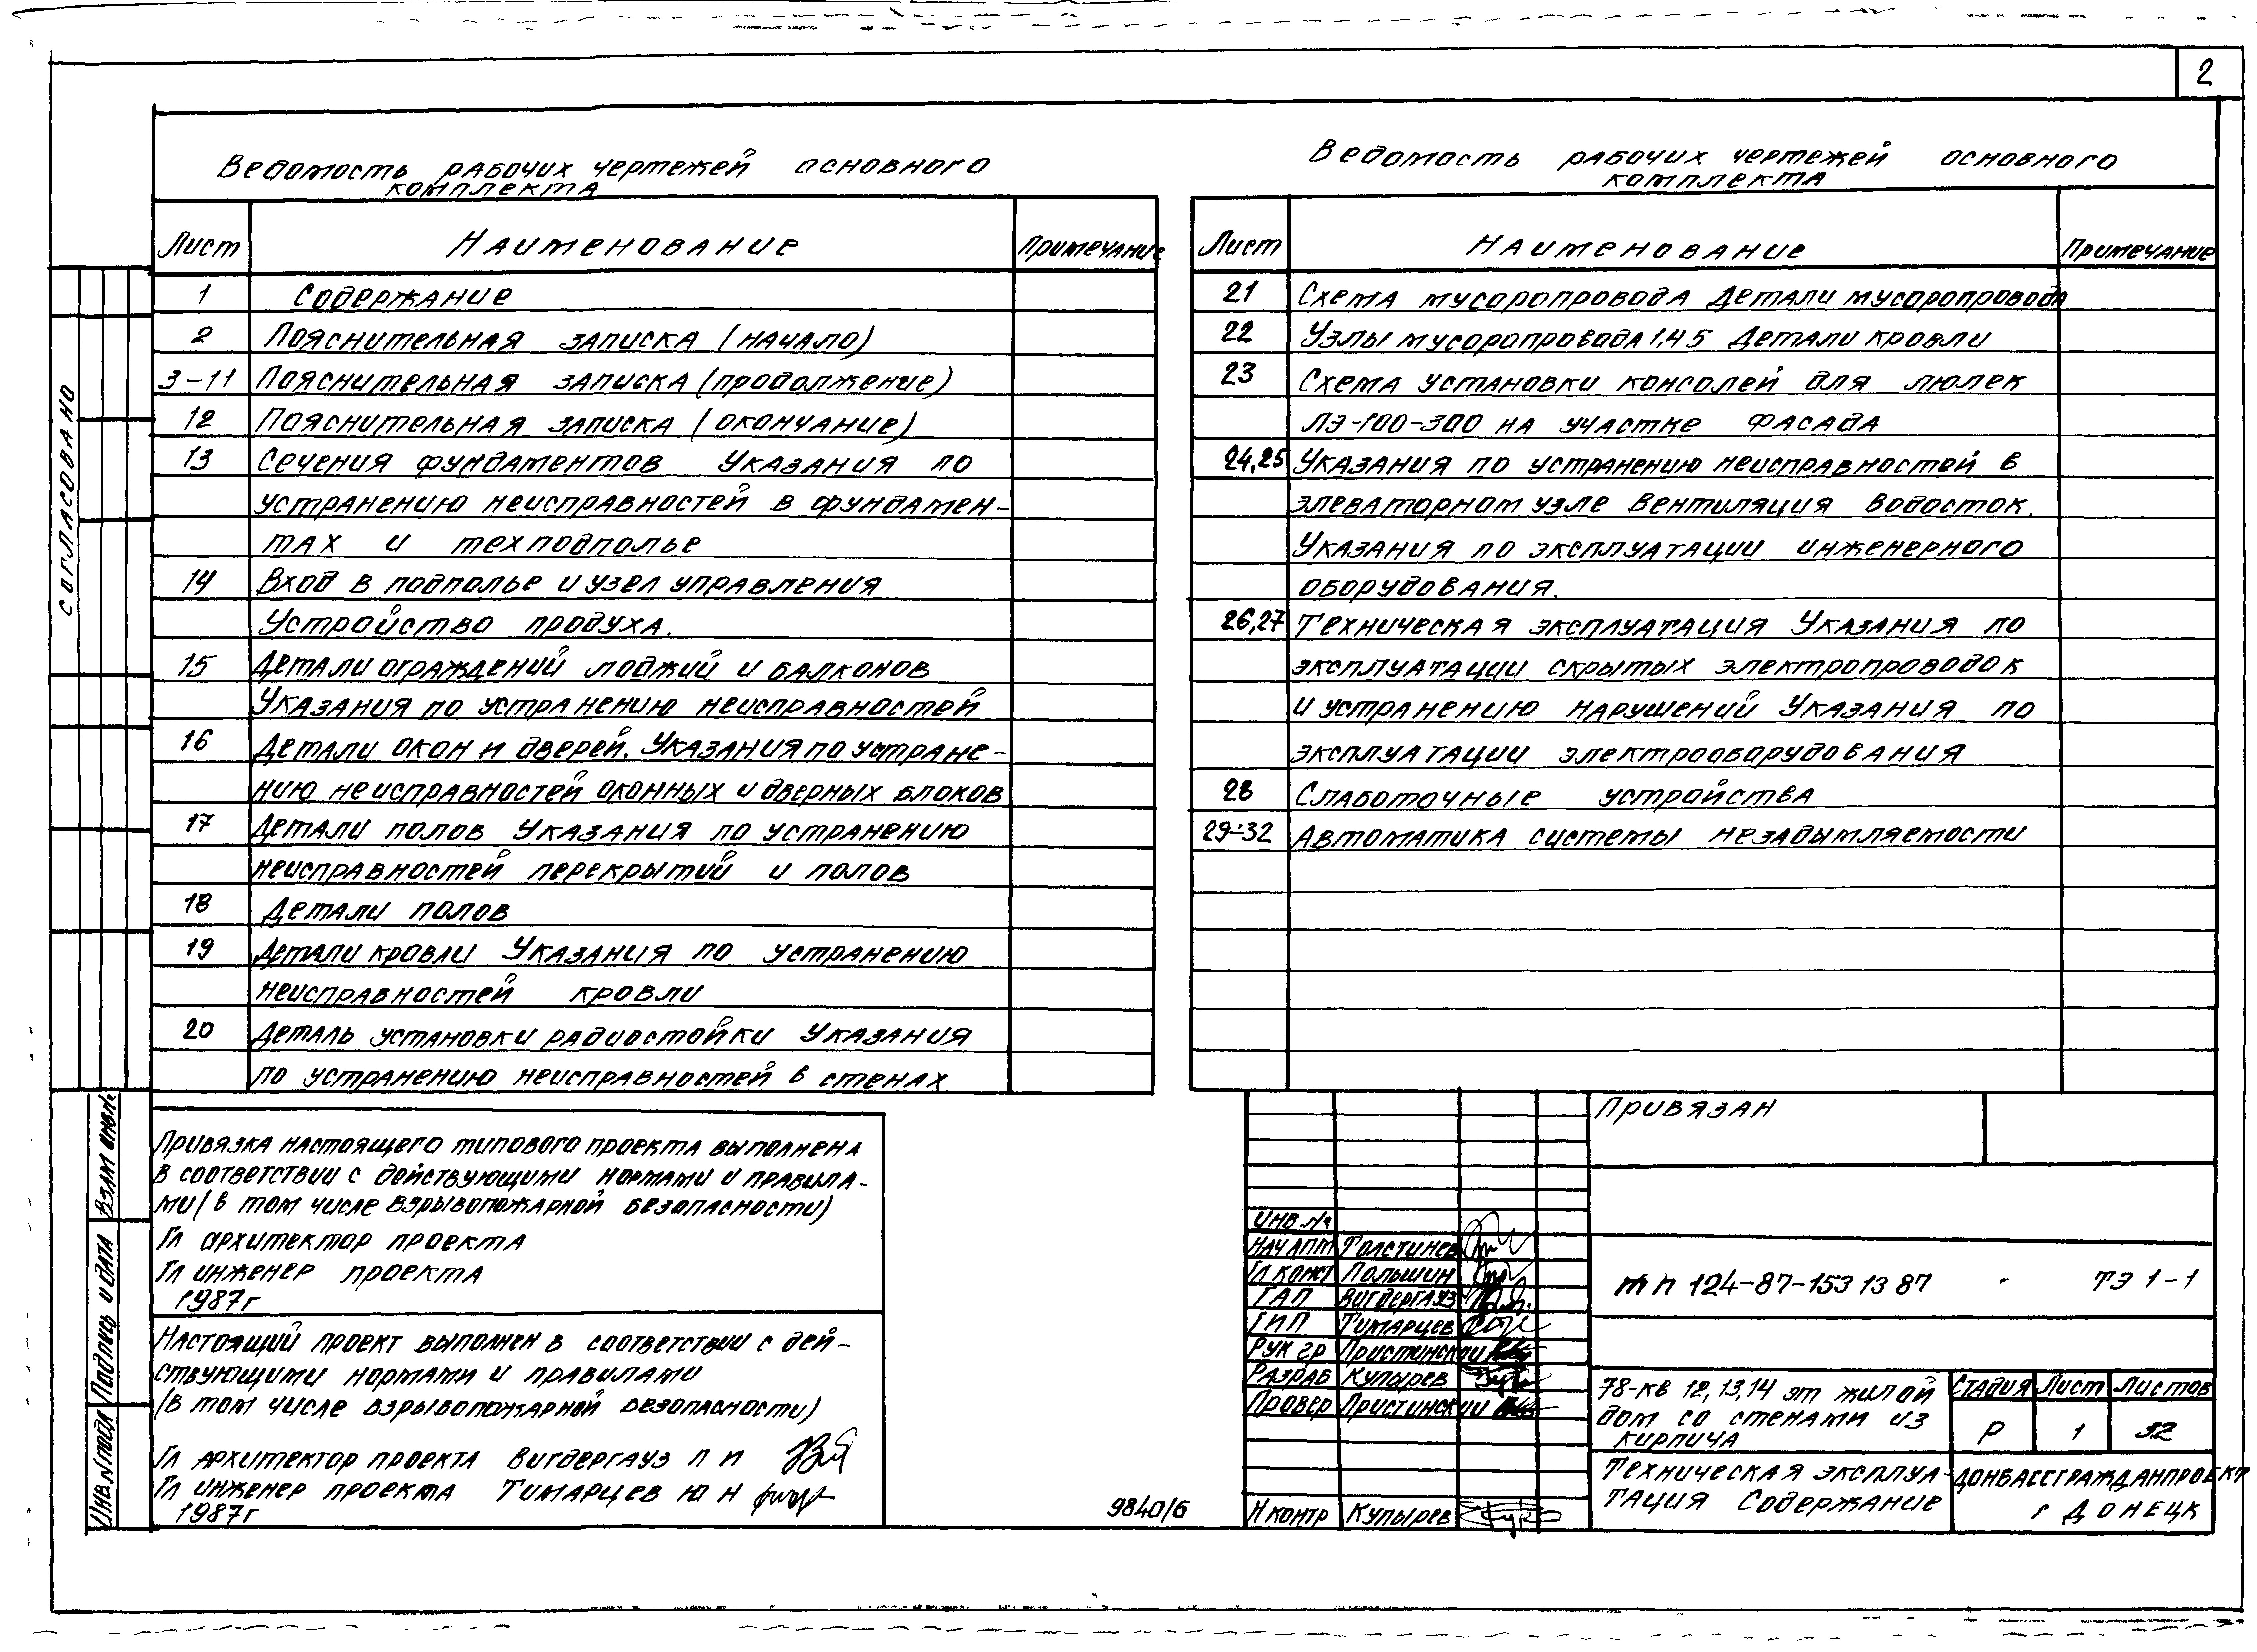 2
Ведомость рабочих чертежей основного
комплекта
Лист Наименование Примечание
1 Содержание
2 Пояснительная записка (начало)
3-11 Пояснительная записка (продолжение)
12 Пояснительная записка (окончание)
13 Сечения фундаментов Указания по
устранению неисправностей в фундамен-
тах и техподполье
14 Вход в подполье и узел управления
Устройство продуха.
15 Детали ограждений лоджий и балконов
Указания по устранению неисправностей
16 Детали окон и дверей. Указания по устране-
нию неисправностей оконных и дверных блоков
17 Детали полов Указания по устранению
неисправностей перекрытий и полов
18 Детали полов
19 Детали кровли Указания по устранению
неисправностей кровли
20 Деталь установки радиостойки Указания
по устранению неисправностей в стенах
Ведомость рабочих чертежей основного
комплекта
Лист Наименование Примечание
21 Схема мусоропровода Детали мусоропровода
22 Узлы мусоропровода 1,4 5 Детали кровли
23 Схема установки консолей для люлек
ЛЭ-100-300 на участке фасада
24,25 Указания по устранению неисправностей в
элеваторном узле Вентиляция Водосток.
Указания по эксплуатации инженерного
оборудования.
26,27 Техническая эксплуатация Указания по
эксплуатации скрытых электропроводок
и устранению нарушений Указания по
эксплуатации электрооборудования
28 Слаботочные устройства
29-32 Автоматика системы незадымляемости
Согласовано
Взам инв.№
Подпись и дата
Инв.N подл
Привязка настоящего типового проекта выполнена
в соответствии с действующими нормами и правила-
ми (в том числе взрывопожарной безопасности)
Гл архитектор проекта
Гл инженер проекта
1987г
Настоящий проект выполнен в соответствии с дей-
ствующими нормами и правилами
(в том числе взрывопожарной безопасности)
Гл архитектор проекта Вигдергауз П И
Гл инженер проекта Тимарцев Ю Н
1987г
9840/6
Инв. №
Нач АПМ Толстинев
Гл конст Польшин
ГАП Вигдергауз
ГИП Тимарцев
Рук гр Пристинский
Разраб Купырев
Провер Пристинский
Н контр Купырев
Привязан
тп 124-87-153 13 87 - ТЭ 1-1
78-кв 12,13,14 эт жилой
дом со стенами из
кирпича
Стадия Лист Листов
Р 1 32
Техническая эксплуа-
тация Содержание
Донбассгражданпроект
г Донецк